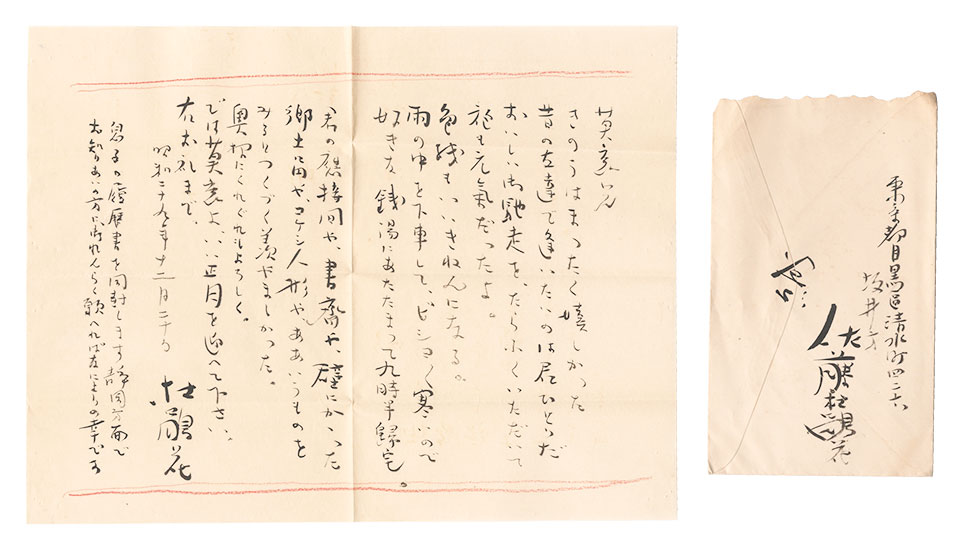 きのうはまったく嬉しかった
昔の友達で逢いたいのは君ひとりだ
おいしい御馳走を、たらふくいただいて
も元氣だったよ。
色紙もいゝきねんになる。
雨の中を下車して、ビショ〱寒いので
好きな銭湯にあたたまって九時半帰宅。
君の應接間や、書齋や、壁にかゝった
郷土画や、コケシ人形や、ああいうものを
みるとつくづく羨やましかった。
奥様にくれぐれもよろしく。
では よ、いい正月を迎へて下さい。
右お礼まで。
昭和二十九年十二月二十日
杜鵑花
息子の履歴書を同封します 静岡方面で
お知りあいの方に御れんらく願へれば の幸です
東京都目黒區清水町四二六
坂井方
佐藤杜鵑花